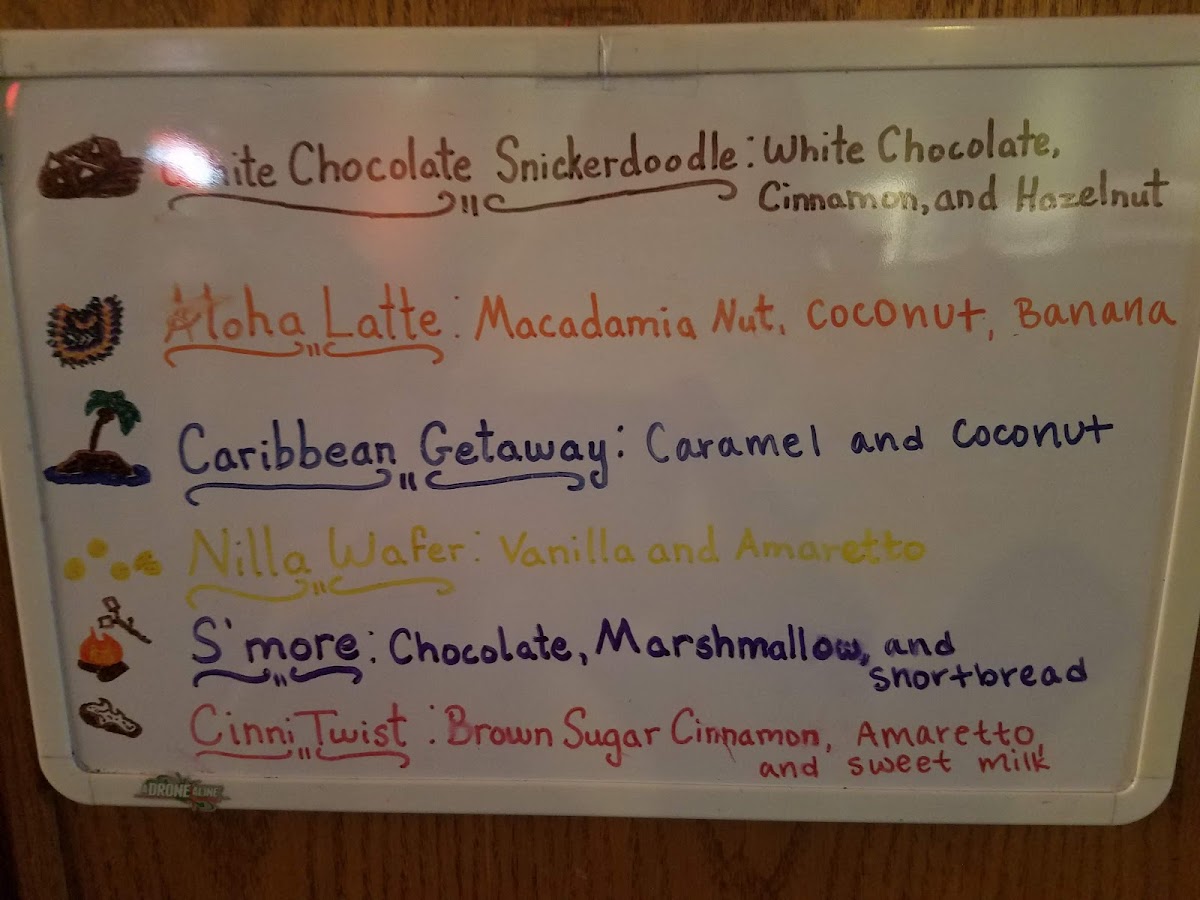 White Chocolate Snickerdoodle: White Chocolate,
Cinnamon, and Hazelnut
Aloha Latte: Macadamia Nut, Coconut, Banana
Caribbean Getaway: Caramel and Coconut
Nilla Wafer: Vanilla and Amaretto
S'more: Chocolate, Marshmallow, and
shortbread
Cinni Twist: Brown Sugar Cinnamon, Amaretto,
and sweet milk
DROME